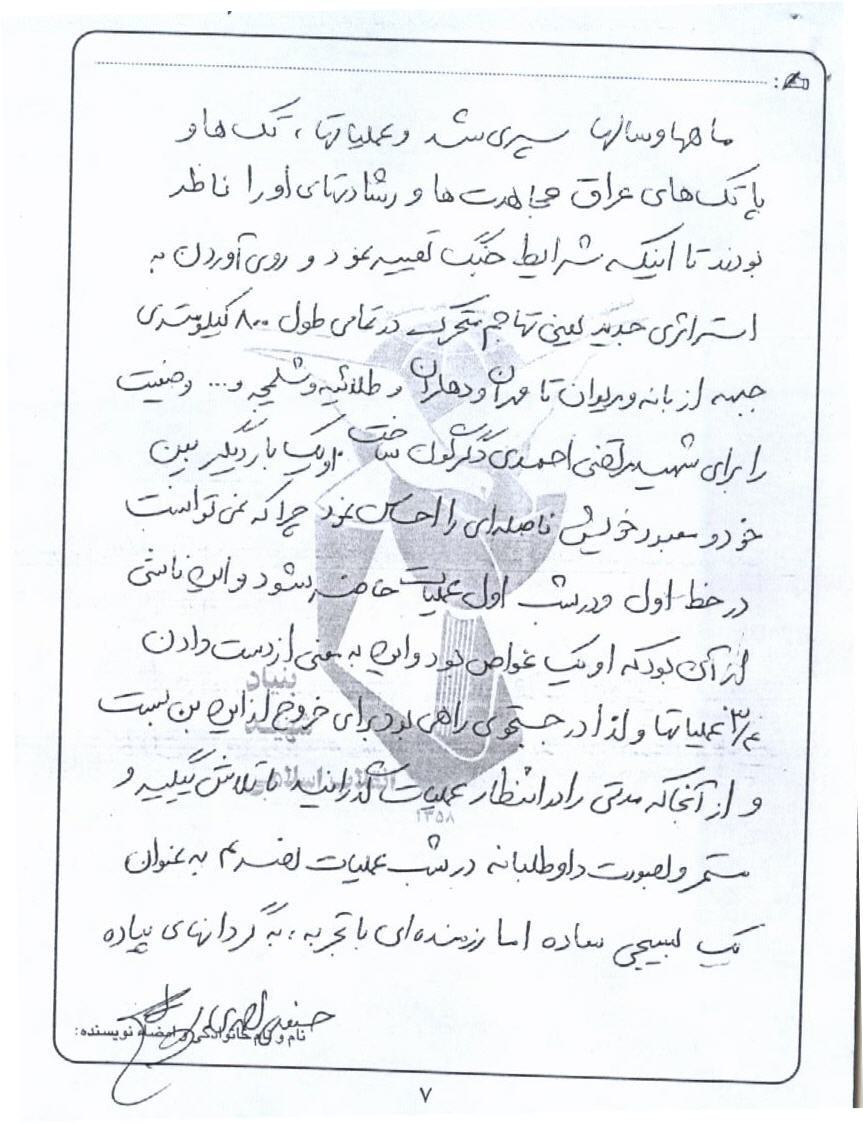 ماهها و سالها سپری شد و عملیاتها ، تک ها و
پاتک های عراق مجاهدت ها و رشادتهای او را ناظر
بودند تا اینکه شرایط جنگ تغییر نمود و روی آوردن به
استراتژی جدید یعنی تهاجم متحرک در تمامی طول ۸۰۰ کیلومتری
جبهه از بانه و مریوان تا مهران و دهلران و طلائیه و شلمچه و... وضعیت
را برای شهید مرتضی احمدی دگرگون ساخت. او یک بار دیگر بین
خود و معبود خویش فاصله ای را احساس نمود چرا که نمی توانست
در خط اول و در شب اول عملیات حاضر بشود و این ناشی
از آن بود که او یک غواص نبود و این به معنی از دست دادن
۳/۴ عملیاتها و لذا در جستجوی راهی بود برای خروج از این بن بست
و از آنجا که مدتی را در انتظار عملیات گذرانید با تلاش پیگیر و
مستمر و بصورت داوطلبانه در شب عملیات نصر ۴ به عنوان
یک بسیجی ساده اما رزمنده ای با تجربه ، به گردانهای پیاده
نام و نام خانوادگی و امضاء نویسنده:
بنیاد
شهید
انقلاب اسلامی
۱۳۵۸
۷